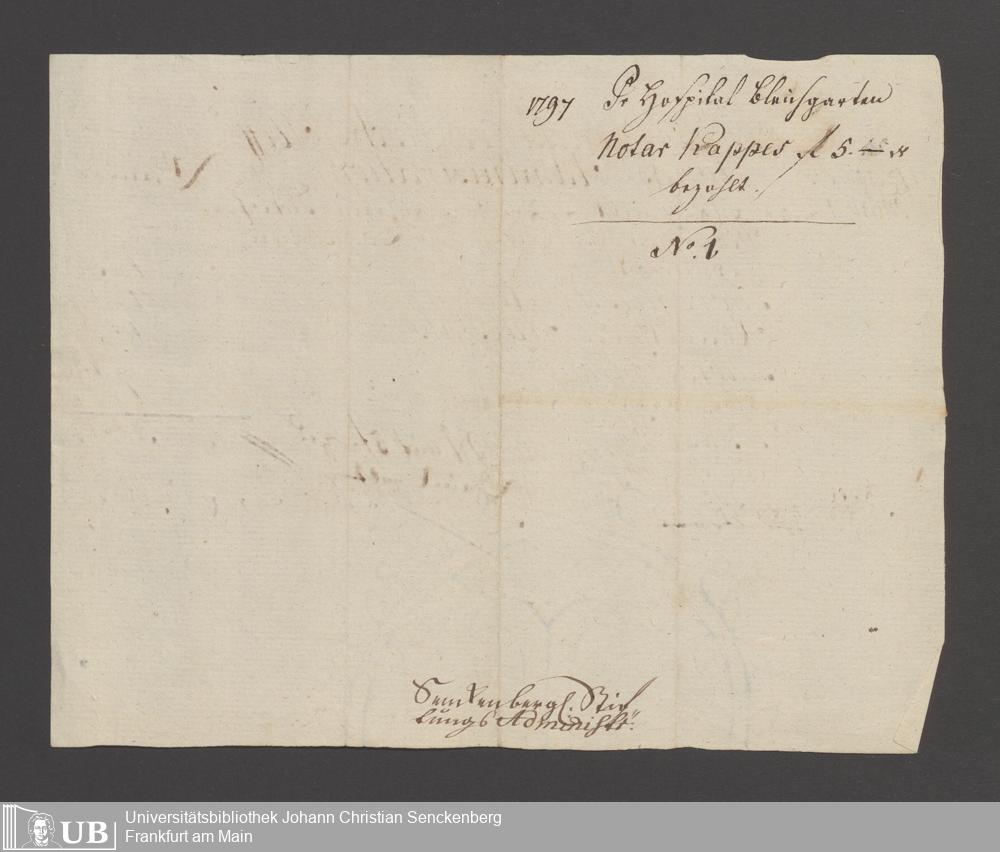 1797 Pr Hospital Bleichgarten
Notar Kappes fl 5. — x
bezahlt.
No. 1
Senckenbergl. Stif
tungs Administr:
UB
Universitätsbibliothek Johann Christian Senckenberg
Frankfurt am Main